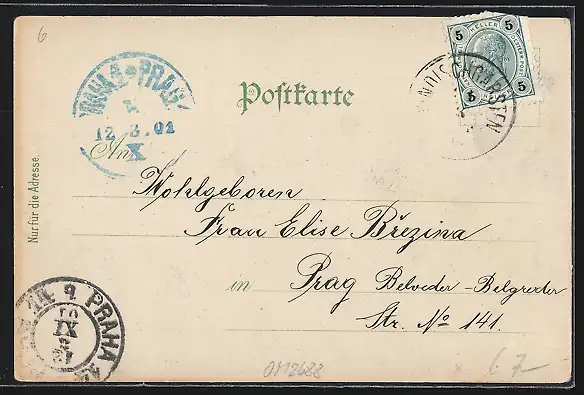 6
5 HELLER 5
5 5
PRAHA-PRAG
12.3.01
X
Postkarte
An
Nur für die Adresse.
Wohlgeboren
Frau Elise Březina
in Prag Belveder-Belgreder
Str. No 141.
PRAHA
IX
0112688